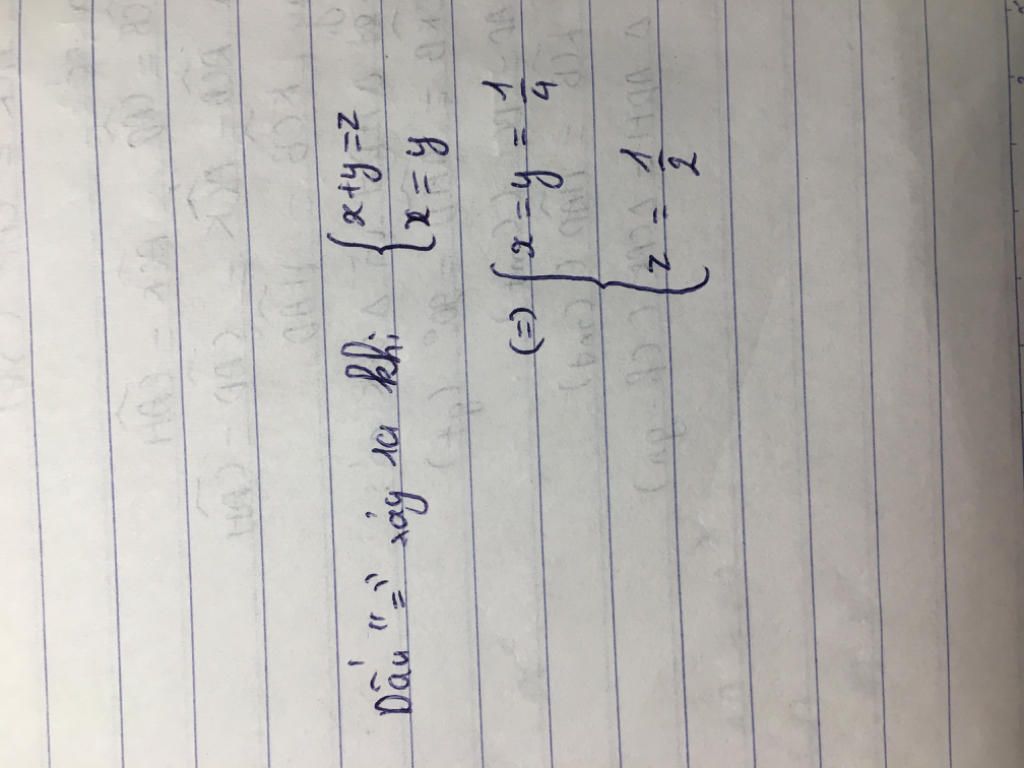 Dấu "=" xảy ra khi { x+y=z
x=y
(=) { x=y=1/4
z=1/2